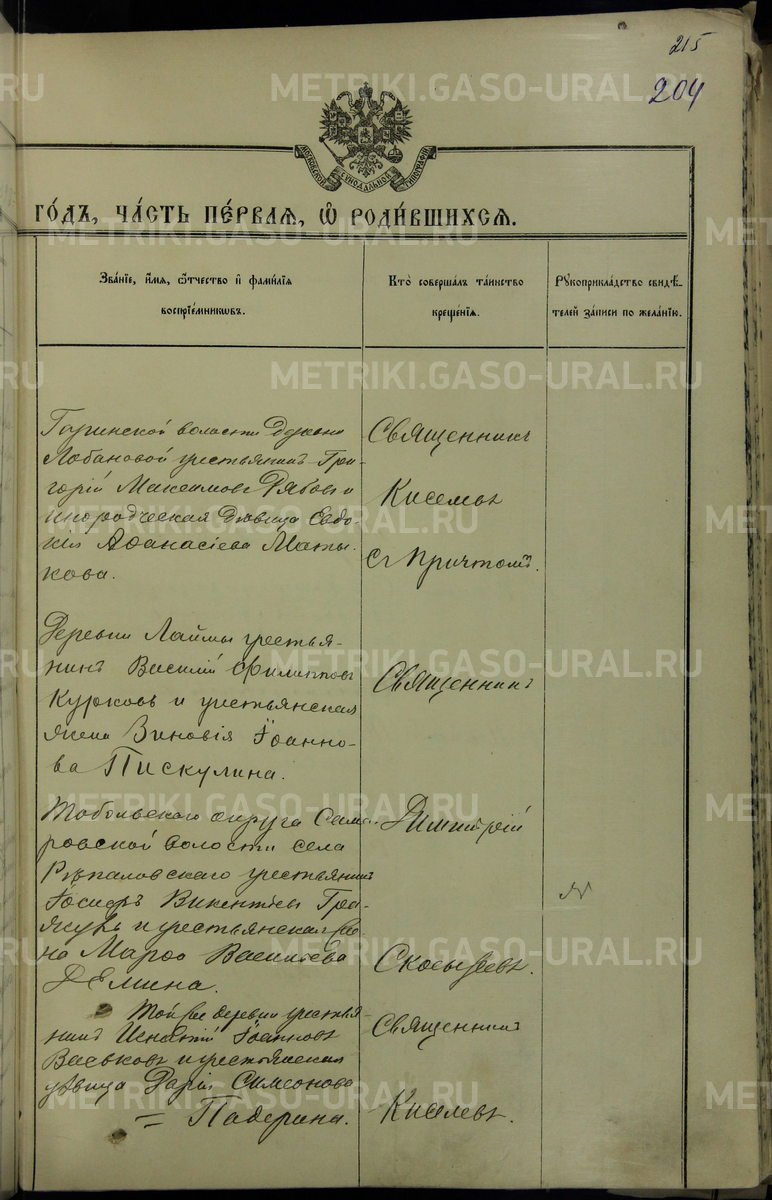 215
204
МОСКОВСКОЙ СѴНОДАЛЬНОЙ ТИПОГРАФІИ
ГОДЪ, ЧАСТЬ ПЕРВАЯ, Ѡ РОДИВШИХСЯ.
Званіе, имя, отчество и фамилія
воспріемниковъ.
Кто совершалъ таинство
крещенія.
Рукоприкладство свидѣ-
телей записи по желанію.
волости Деревни
Лобановой крестьянинъ Гри-
горій Максимовъ Рябовъ и
инородческая Дѣвица Евдо-
кія Аѳанасіева Маты-
кова.
Священникъ
Киселевъ
Съ Причтомъ.
Деревни Лаймы крестья-
нинъ Василій Филипповъ
Курковъ и крестьянская
жена Зиновія Іоанно-
ва Пискулина.
Священникъ
Тобольскаго округа Сама-
ровской волости села
Рѣполовскаго крестьянинъ
Викентіевъ
и крестьянская же-
на Марѳа Васильева
Демина.
Димитрій
Скосыревъ.
Той же деревни крестья-
нинъ Игнатій Іоанновъ
Васьковъ и крестьянская
дѣвица Дарія Симеонова
= Падерина.
Священникъ
Киселевъ.
METRIKI.GASO-URAL.RU